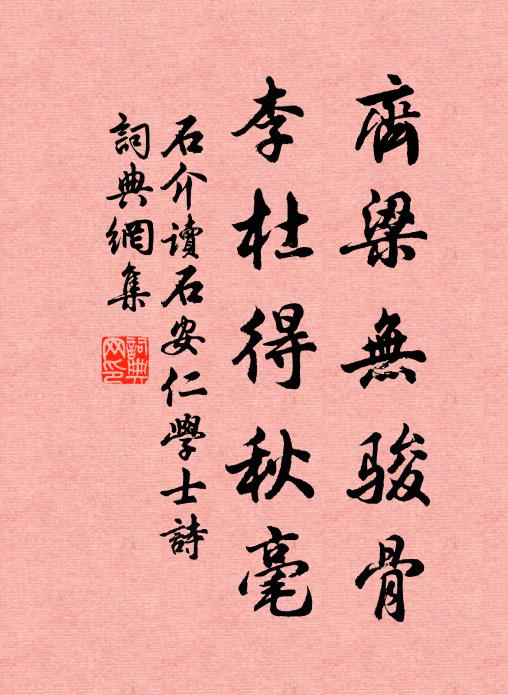 齊梁無骏骨
李杜得秋毫
石介讀石安仁學士詩
詞典網集
詞典網印